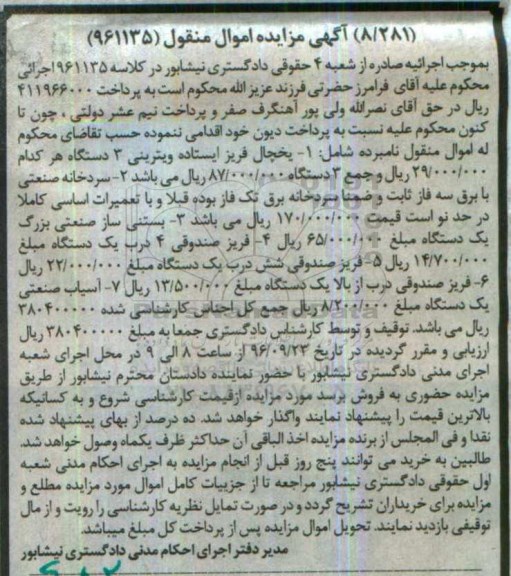 (۸/۲۸۱) آگهی مزایده اموال منقول (۹۶۱۱۳۵)
بموجب اجرائیه صادره از شعبه ۴ حقوقی دادگستری نیشابور در کلاسه ۹۶۱۱۳۵ اجرائی
محکوم علیه آقای فرامرز حضرتی فرزند عزیز الله محکوم است به پرداخت ۴۱۱۹۶۶۰۰۰
ریال در حق آقای نصرالله ولی پور آهنگرف صفر و پرداخت نیم عشر دولتی ، چون تا
کنون محکوم علیه نسبت به پرداخت دیون خود اقدامی ننموده حسب تقاضای محکوم
له اموال منقول نامبرده شامل: ۱- یخچال فریز ایستاده ویترینی ۳ دستگاه هر کدام
۲۹/۰۰۰/۰۰۰ ریال و جمع ۳ دستگاه ۸۷/۰۰۰/۰۰۰ ریال می باشد ۲- سردخانه صنعتی
با برق سه فاز ثابت و ضمنا سردخانه برق تک فاز بوده قبلا و با تعمیرات اساسی کاملا
در حد نو است قیمت ۱۷۰/۰۰۰/۰۰۰ ریال می باشد ۳- بستنی ساز صنعتی بزرگ
یک دستگاه مبلغ ۶۵/۰۰۰/۰۰۰ ریال ۴- فریز صندوقی ۴ درب یک دستگاه مبلغ
۱۴/۷۰۰/۰۰۰ ریال ۵- فریز صندوقی شش درب یک دستگاه مبلغ ۲۲/۰۰۰/۰۰۰ ریال
۶- فریز صندوقی درب از بالا یک دستگاه مبلغ ۱۳/۵۰۰/۰۰۰ ریال ۷- آسیاب صنعتی
یک دستگاه مبلغ ۸/۲۰۰/۰۰۰ ریال جمع کل اجناس کارشناسی شده ۳۸۰۴۰۰۰۰۰
ریال می باشد. توقیف و توسط کارشناس دادگستری جمعا به مبلغ ۳۸۰۴۰۰۰۰۰ ریال
ارزیابی و مقرر گردیده در تاریخ ۹۶/۰۹/۲۳ از ساعت ۸ الی ۹ در محل اجرای شعبه
اجرای مدنی دادگستری نیشابور با حضور نماینده دادستان محترم نیشابور از طریق
مزایده حضوری به فروش برسد مورد مزایده ازقیمت کارشناسی شروع و به کسانیکه
بالاترین قیمت را پیشنهاد نمایند واگذار خواهد شد. ده درصد از بهای پیشنهاد شده
نقدا و فی المجلس از برنده مزایده اخذ الباقی آن حداکثر ظرف یکماه وصول خواهد شد.
طالبین به خرید می توانند پنج روز قبل از انجام مزایده به اجرای احکام مدنی شعبه
اول حقوقی دادگستری نیشابور مراجعه تا از جزییات کامل اموال مورد مزایده مطلع و
مزایده برای خریداران تشریح گردد و در صورت تمایل نظریه کارشناسی را رویت و از مال
توقیفی بازدید نمایند. تحویل اموال مزایده پس از پرداخت کل مبلغ میباشد.
مدیر دفتر اجرای احکام مدنی دادگستری نیشابور